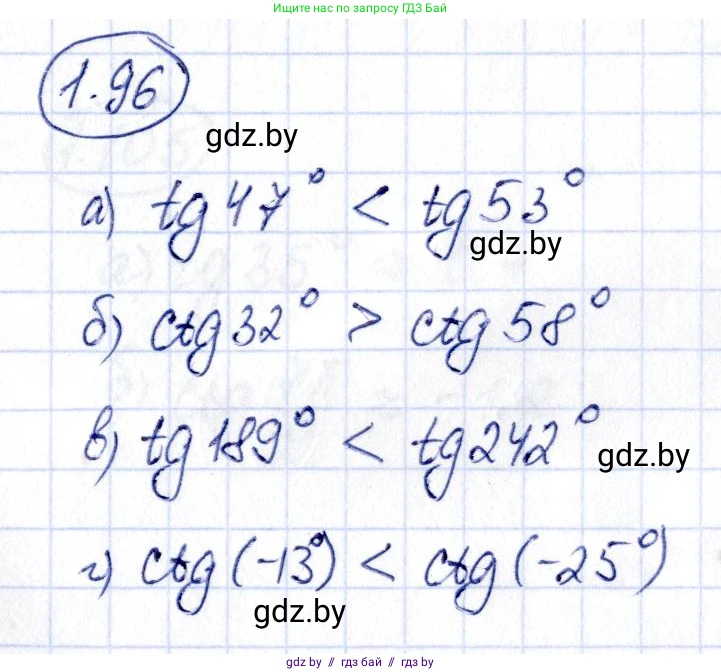 Ищите нас по запросу ГДЗ Бай
1.96
gdz.by
а) tg 47° < tg 53°
gdz.by
б) ctg 32° > ctg 58°
в) tg 189° < tg 242°
gdz.by
г) ctg (-13°) < ctg (-25°)
gdz.by
gdz.by // гдз бай // гдз by